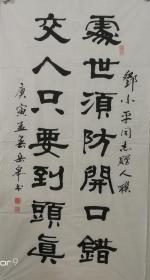 鄧小平同志贈人聯
處世須防開口錯
交人只要到頭眞
庚寅孟春岳皋书
or9